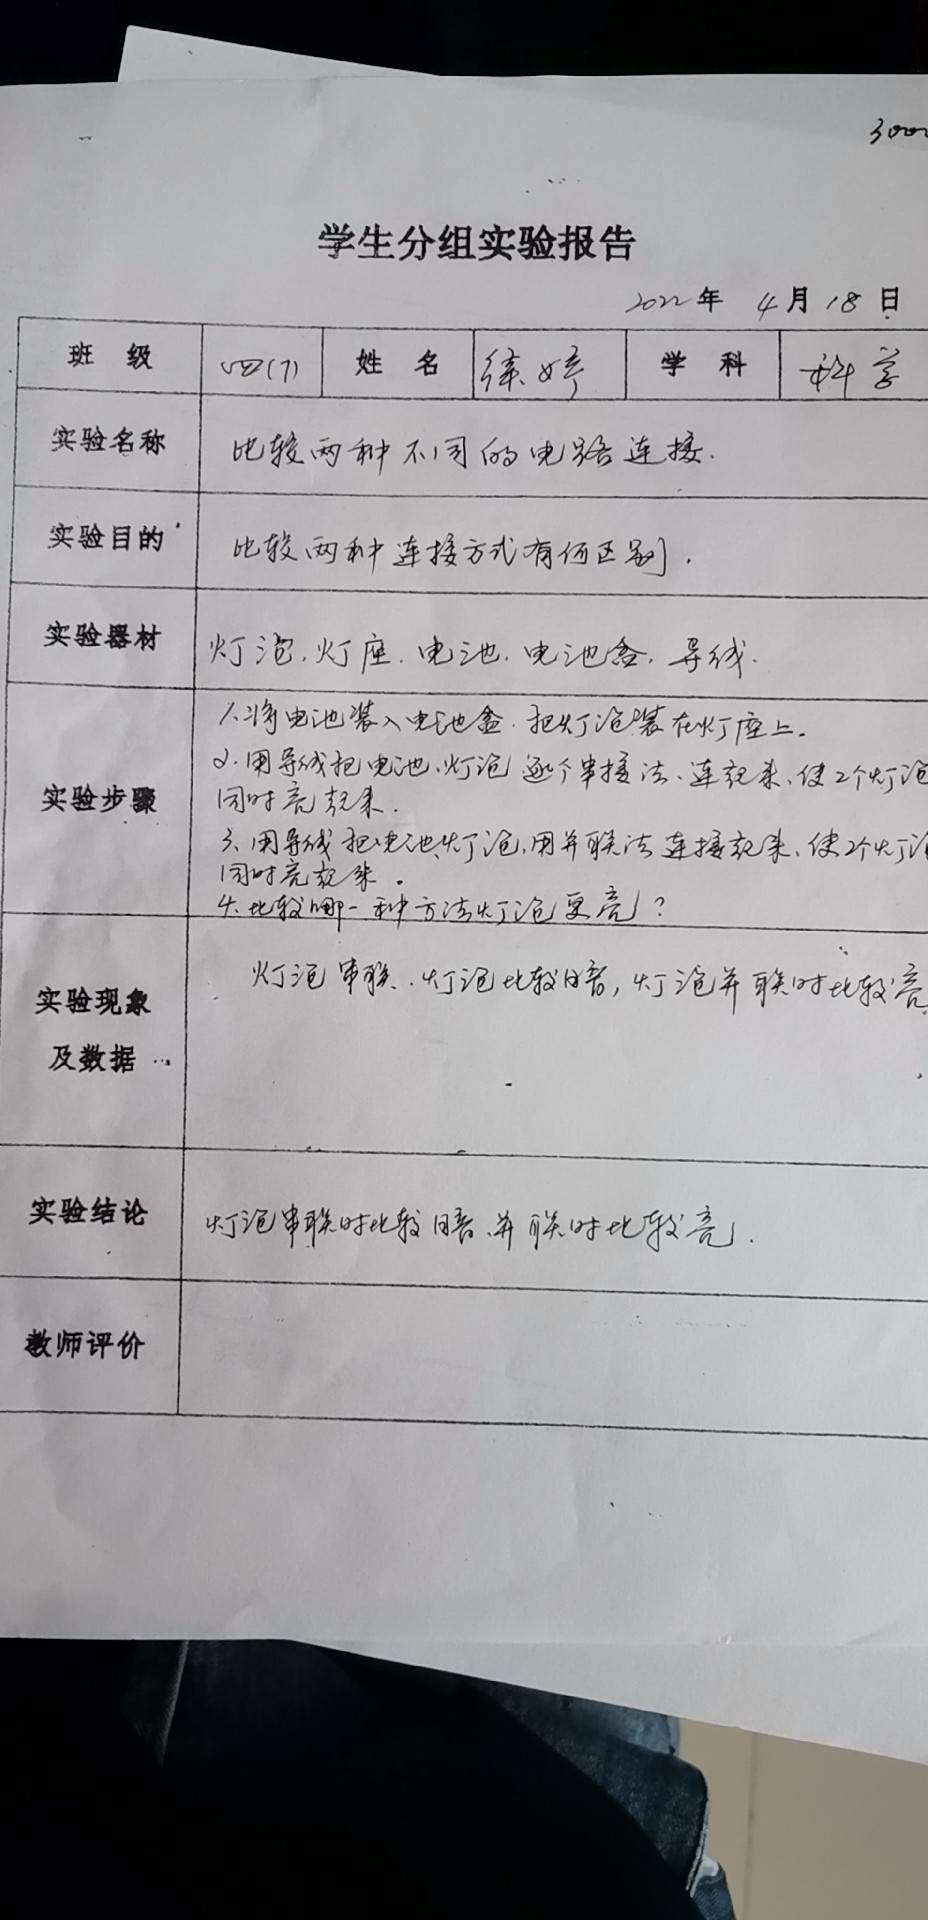 学生分组实验报告
2022年 4月18日
班 级 四(7) 姓 名 徐婷 学 科 科学
实验名称 比较两种不同的电路连接.
实验目的 比较两种连接方式有何区别.
实验器材 灯泡.灯座.电池.电池盒.导线.
实验步骤
1.将电池装入电池盒.把灯泡装在灯座上.
2.用导线把电池.灯泡逐个串接法.连起来.使2个灯泡
同时亮起来.
3.用导线把电池灯泡,用并联法连接起来.使2个灯泡
同时亮起来.
4.比较哪一种方法灯泡更亮?
实验现象
及数据
灯泡串联.灯泡比较暗,灯泡并联时比较亮
实验结论 灯泡串联时比较暗.并联时比较亮.
教师评价